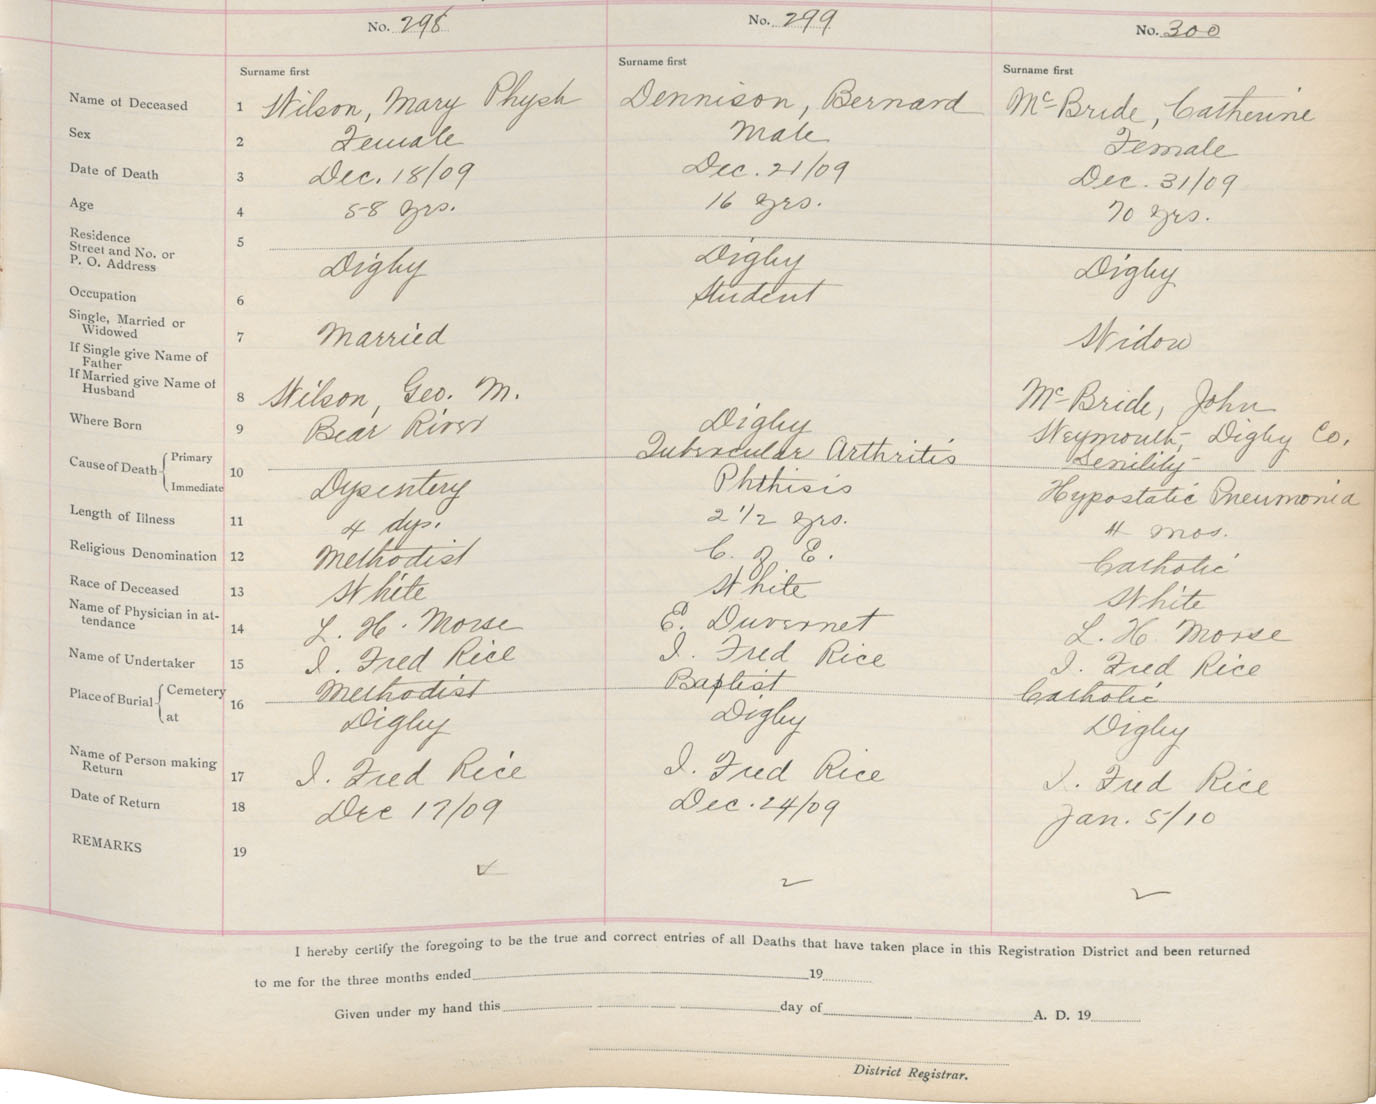 No. 298 No. 299 No. 300
Surname first Surname first Surname first
Name of Deceased 1 Wilson, Mary Physh Dennison, Bernard McBride, Catherine
Sex 2 Female Male Female
Date of Death 3 Dec. 18/09 Dec. 21/09 Dec. 31/09
Age 4 58 yrs. 16 yrs. 70 yrs.
Residence
Street and No. or 5
P. O. Address Digby Digby Digby
Occupation 6 Student
Single, Married or
Widowed 7 Married Widow
If Single give Name of
Father
If Married give Name of
Husband 8 Wilson, Geo. M. McBride, John
Where Born 9 Bear River Digby Weymouth, Digby Co.
Cause of Death Primary 10 Tubercular Arthritis Senility
Immediate Dysentery Phthisis Hypostatic Pneumonia
Length of Illness 11 4 dys. 2 1/2 yrs. 4 mos.
Religious Denomination 12 Methodist C. of E. Catholic
Race of Deceased 13 White White White
Name of Physician in at-
tendance 14 L. H. Morse E. Duvernet L. H. Morse
Name of Undertaker 15 I. Fred Rice I. Fred Rice I. Fred Rice
Place of Burial Cemetery 16 Methodist Baptist Catholic
at Digby Digby Digby
Name of Person making
Return 17 I. Fred Rice I. Fred Rice I. Fred Rice
Date of Return 18 Dec 17/09 Dec. 24/09 Jan. 5/10
REMARKS 19
I hereby certify the foregoing to be the true and correct entries of all Deaths that have taken place in this Registration District and been returned
to me for the three months ended 19
Given under my hand this day of A. D. 19
District Registrar.